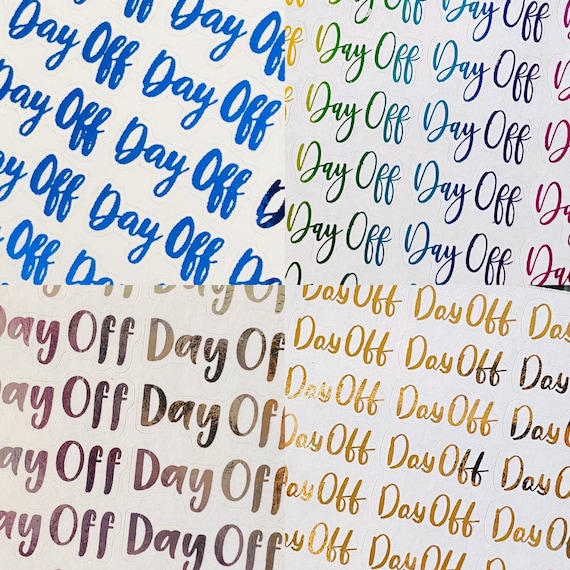 Day Off
Day Off Day Off
Day Off Day Off
Day Off Day Off
Off Day
Day Off Day Off
Day Off Day Off
Day Off Day Off
Day Off Day Off
Day Off Day Off
Day Off Day Off
Day Off Day Off
Day Off Day Off
Day Off Day Off
Day Off Day Off Day
Day Off Day Off Day
Day Off Day Off Day
Day Off Day Off Day
Day Off Day Off Day
Day Off Day Off